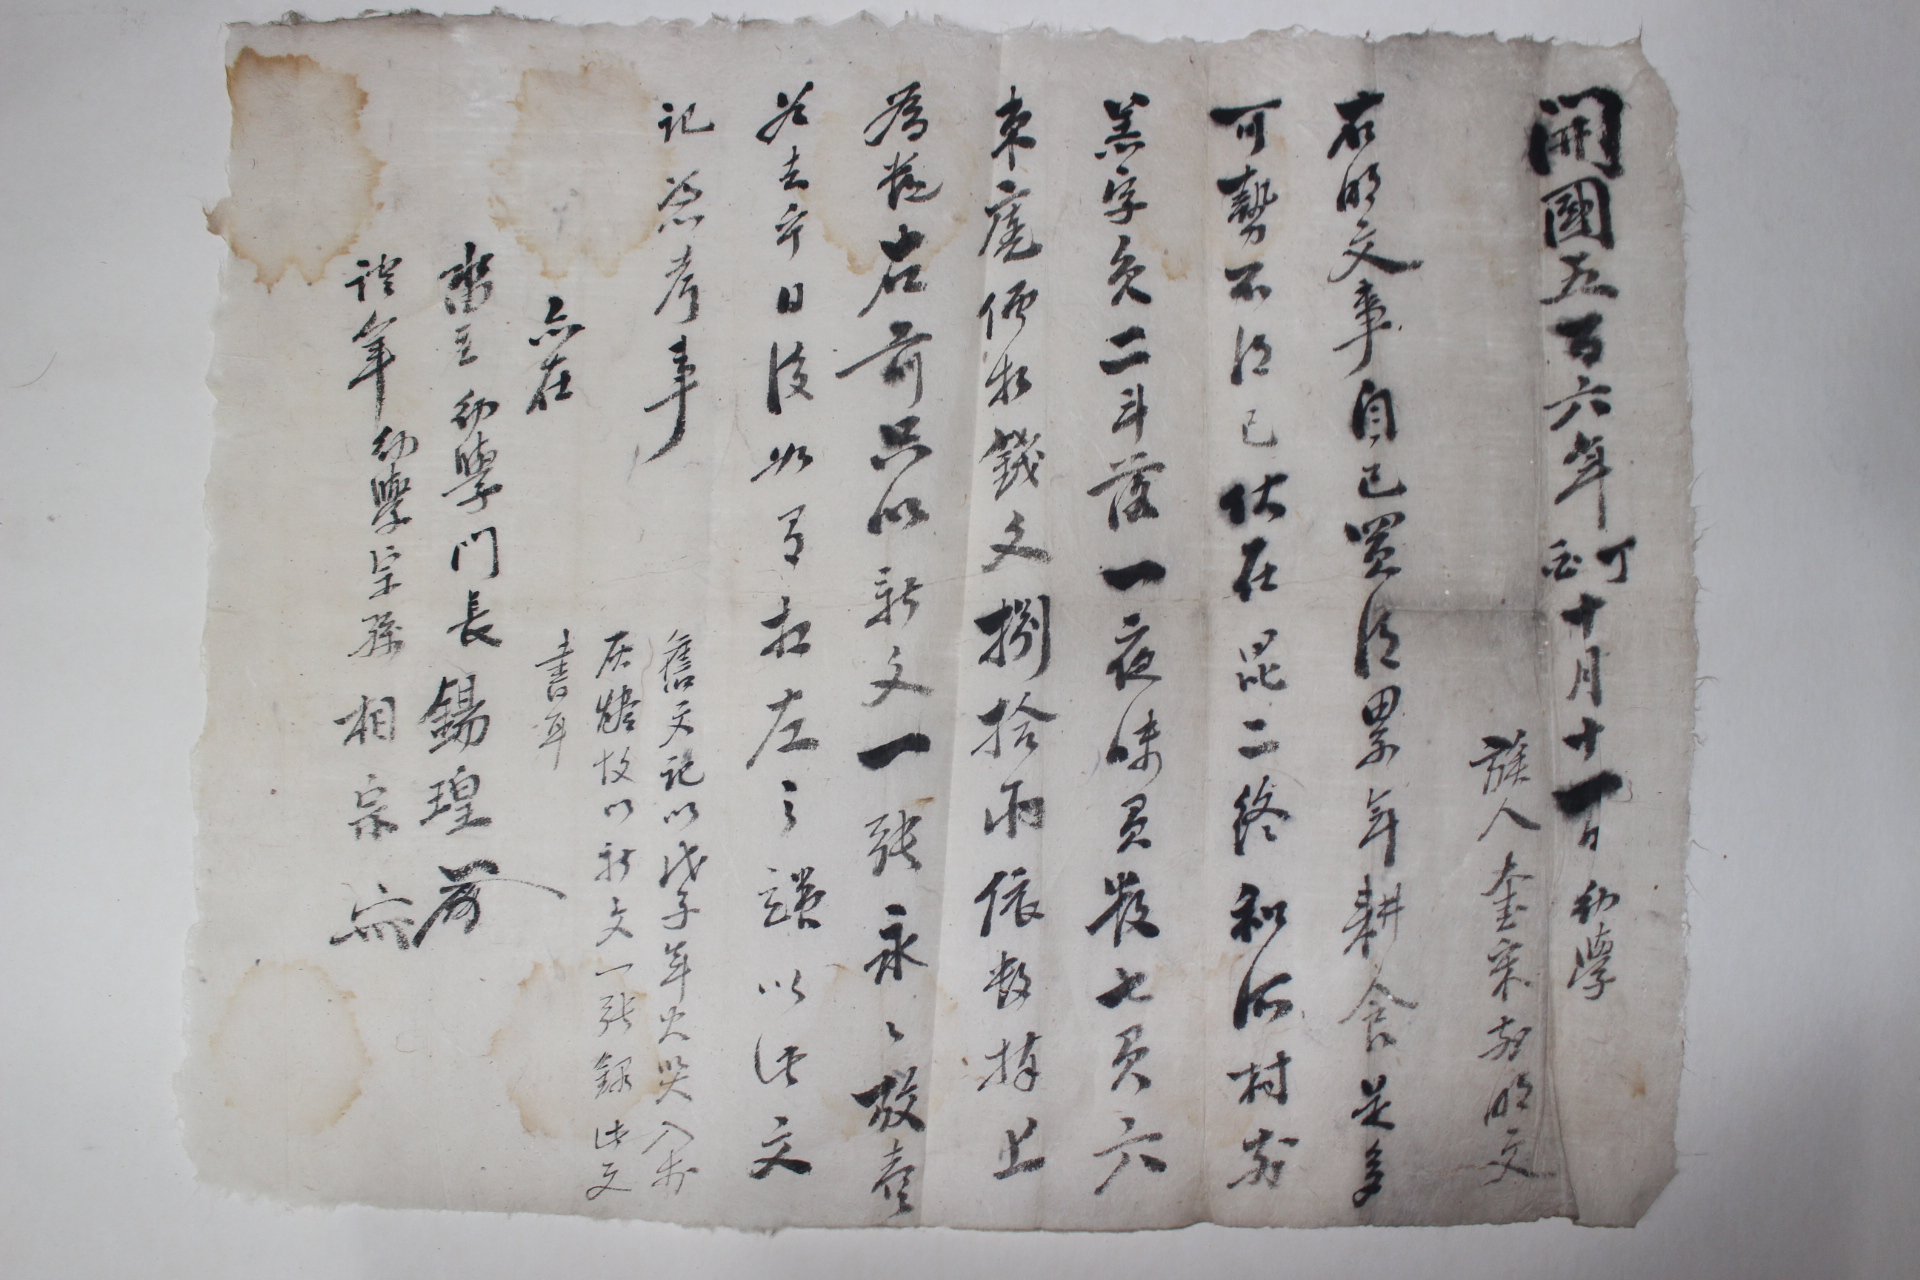 開國五百六年丁酉十月十一日 幼學
族人奎宷前明文
右明文事自己買得累年耕食是多
可勢不得已伏在昆二終和面村前
羔字負二斗落一夜味員數七負六
束庫価折錢文捌拾兩依數捧上
爲旀右前只以新文一張永〻放賣
爲去乎日後如有相左之端以此文
記憑考事
舊文記以戊子年火災入於
灰燼故以新文一張錄此文
書耳
亦在
畓主 幼學門長 錫瑝
證筆 幼學 宗孫 相宗